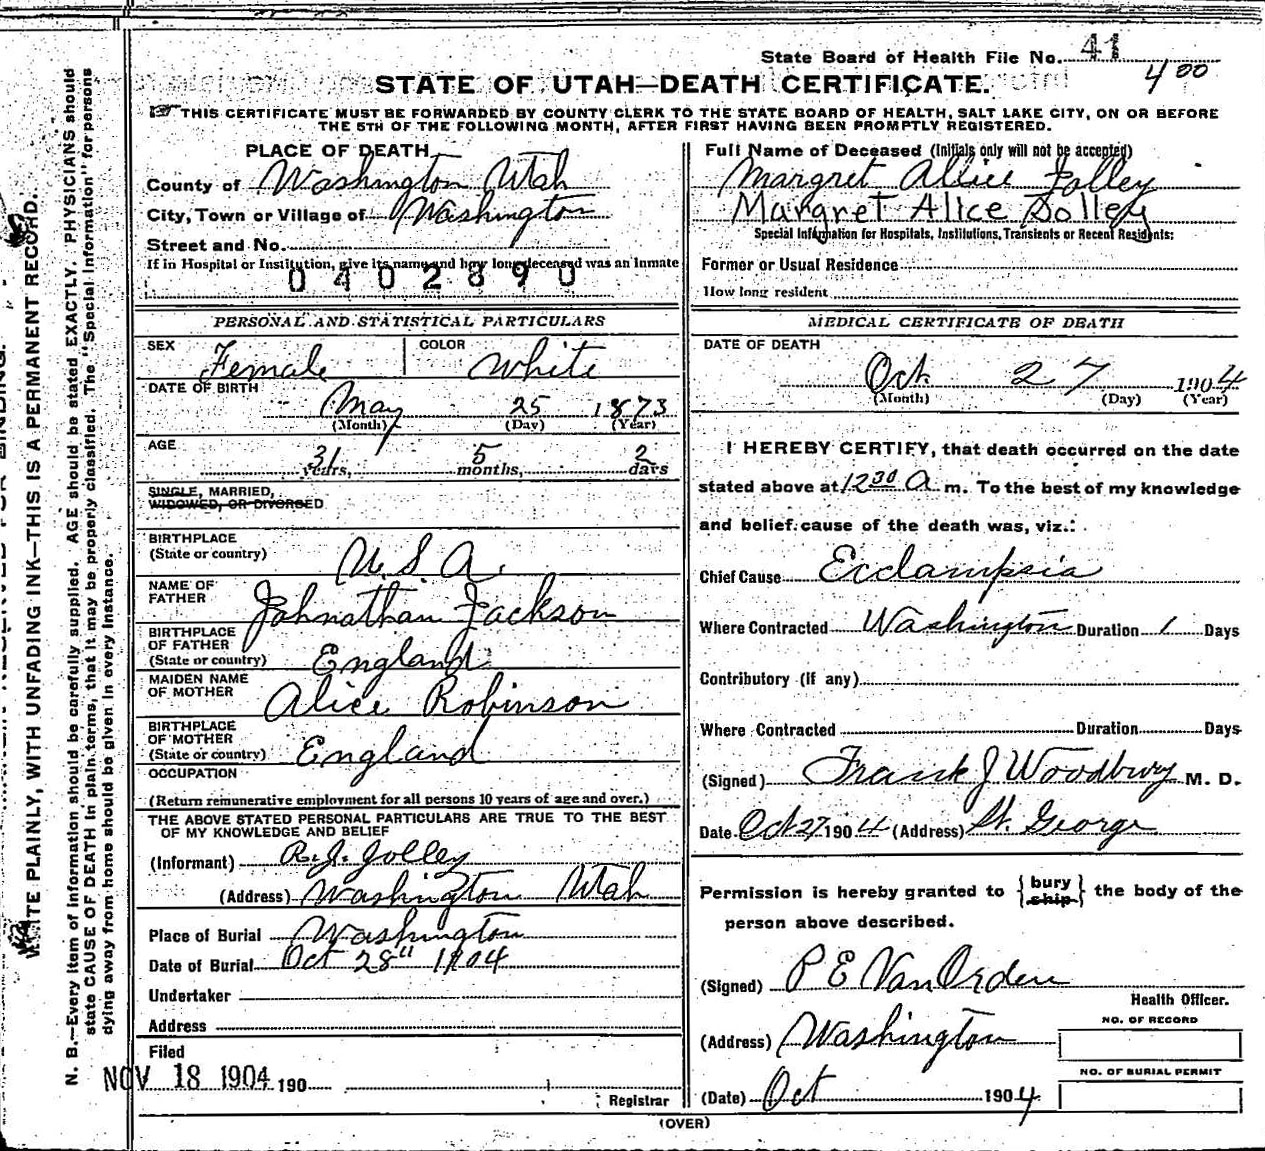 State Board of Health File No. 41
400
STATE OF UTAH—DEATH CERTIFICATE.
THIS CERTIFICATE MUST BE FORWARDED BY COUNTY CLERK TO THE STATE BOARD OF HEALTH, SALT LAKE CITY, ON OR BEFORE
THE 5TH OF THE FOLLOWING MONTH, AFTER FIRST HAVING BEEN PROMPTLY REGISTERED.
PLACE OF DEATH
County of Washington Utah
City, Town or Village of Washington
Street and No.
If in Hospital or Institution, give its name and how long deceased was an Inmate
0402890
PERSONAL AND STATISTICAL PARTICULARS
SEX Female COLOR White
DATE OF BIRTH
May 25 1873
(Month) (Day) (Year)
AGE
31 years, 5 months, 2 days
SINGLE, MARRIED,
WIDOWED, OR DIVORCED
BIRTHPLACE
(State or country) U.S.A.
NAME OF
FATHER Johnathan Jackson
BIRTHPLACE
OF FATHER
(State or country) England
MAIDEN NAME
OF MOTHER Alice Robinson
BIRTHPLACE
OF MOTHER
(State or country) England
OCCUPATION
(Return remunerative employment for all persons 10 years of age and over.)
THE ABOVE STATED PERSONAL PARTICULARS ARE TRUE TO THE BEST
OF MY KNOWLEDGE AND BELIEF
(Informant) R.J. Jolley
(Address) Washington Utah
Place of Burial Washington
Date of Burial Oct 28" 1904
Undertaker
Address
Filed
NOV 18 1904 190
Registrar
Full Name of Deceased (Initials only will not be accepted)
Margret Allice Jolley
Margret Alice Jolley
Special Information for Hospitals, Institutions, Transients or Recent Residents:
Former or Usual Residence
How long resident
MEDICAL CERTIFICATE OF DEATH
DATE OF DEATH
Oct. 27 1904
(Month) (Day) (Year)
I HEREBY CERTIFY, that death occurred on the date
stated above at 1230 A m. To the best of my knowledge
and belief cause of the death was, viz.:
Chief Cause Ecclampsia
Where Contracted Washington Duration 1 Days
Contributory (if any)
Where Contracted Duration Days
(Signed) Frank J Woodbury M. D.
Date Oct 27 1904 (Address) St. George
Permission is hereby granted to { bury ship } the body of the
person above described.
(Signed) P E VanOrden
Health Officer.
(Address) Washington
NO. OF RECORD
NO. OF BURIAL PERMIT
(Date) Oct 1904
(OVER)
WRITE PLAINLY, WITH UNFADING INK—THIS IS A PERMANENT RECORD.
N. B.—Every item of information should be carefully supplied. AGE should be stated EXACTLY. PHYSICIANS should
state CAUSE OF DEATH in plain terms, that it may be properly classified. The "Special Information" for persons
dying away from home should be given in every instance.